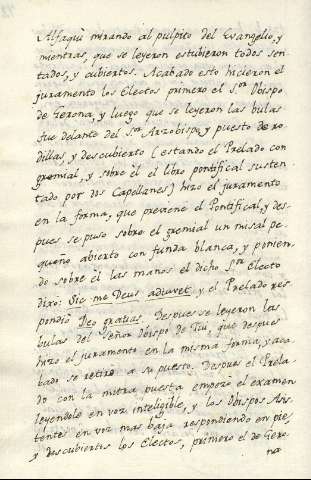 Alfaqui mirando al pulpito del Evangelio, y
mientras, que se leyeron estubieron todos sen
tados, y cubiertos. Acabado esto hicieron el
juramento los Electos primero el S.or Obispo
de Gerona, y luego que se leyeron las bulas
fue delante del S.or Arzobispo, y puesto de ro
dillas, y descubierto (estando el Prelado con
gremial, y sobre èl el libro pontifical susten
tado por dos Capellanes) hizo el juramento
en la forma, que previene el Pontifical, y des
pues se puso sobre el gremial un misal pe
queño abierto con funda blanca, y ponien
do sobre èl las manos el dicho S.or Electo
dixo: Sic me Deus adiuvet y el Prelado res
pondiò Deo gratias. Despues se leyeron las
bulas del Señor Obispo de Tui, que despues
hizo el juramento en la misma forma, y aca
bado se retirò a su puesto. Despues el Prela
do con la mitra puesta empezò el examen
leyendole en voz inteligible, y los Obispos Asis
tentes en voz mas baja respondiendo en pie,
y descubiertos los Electos, primero el de Gero
na